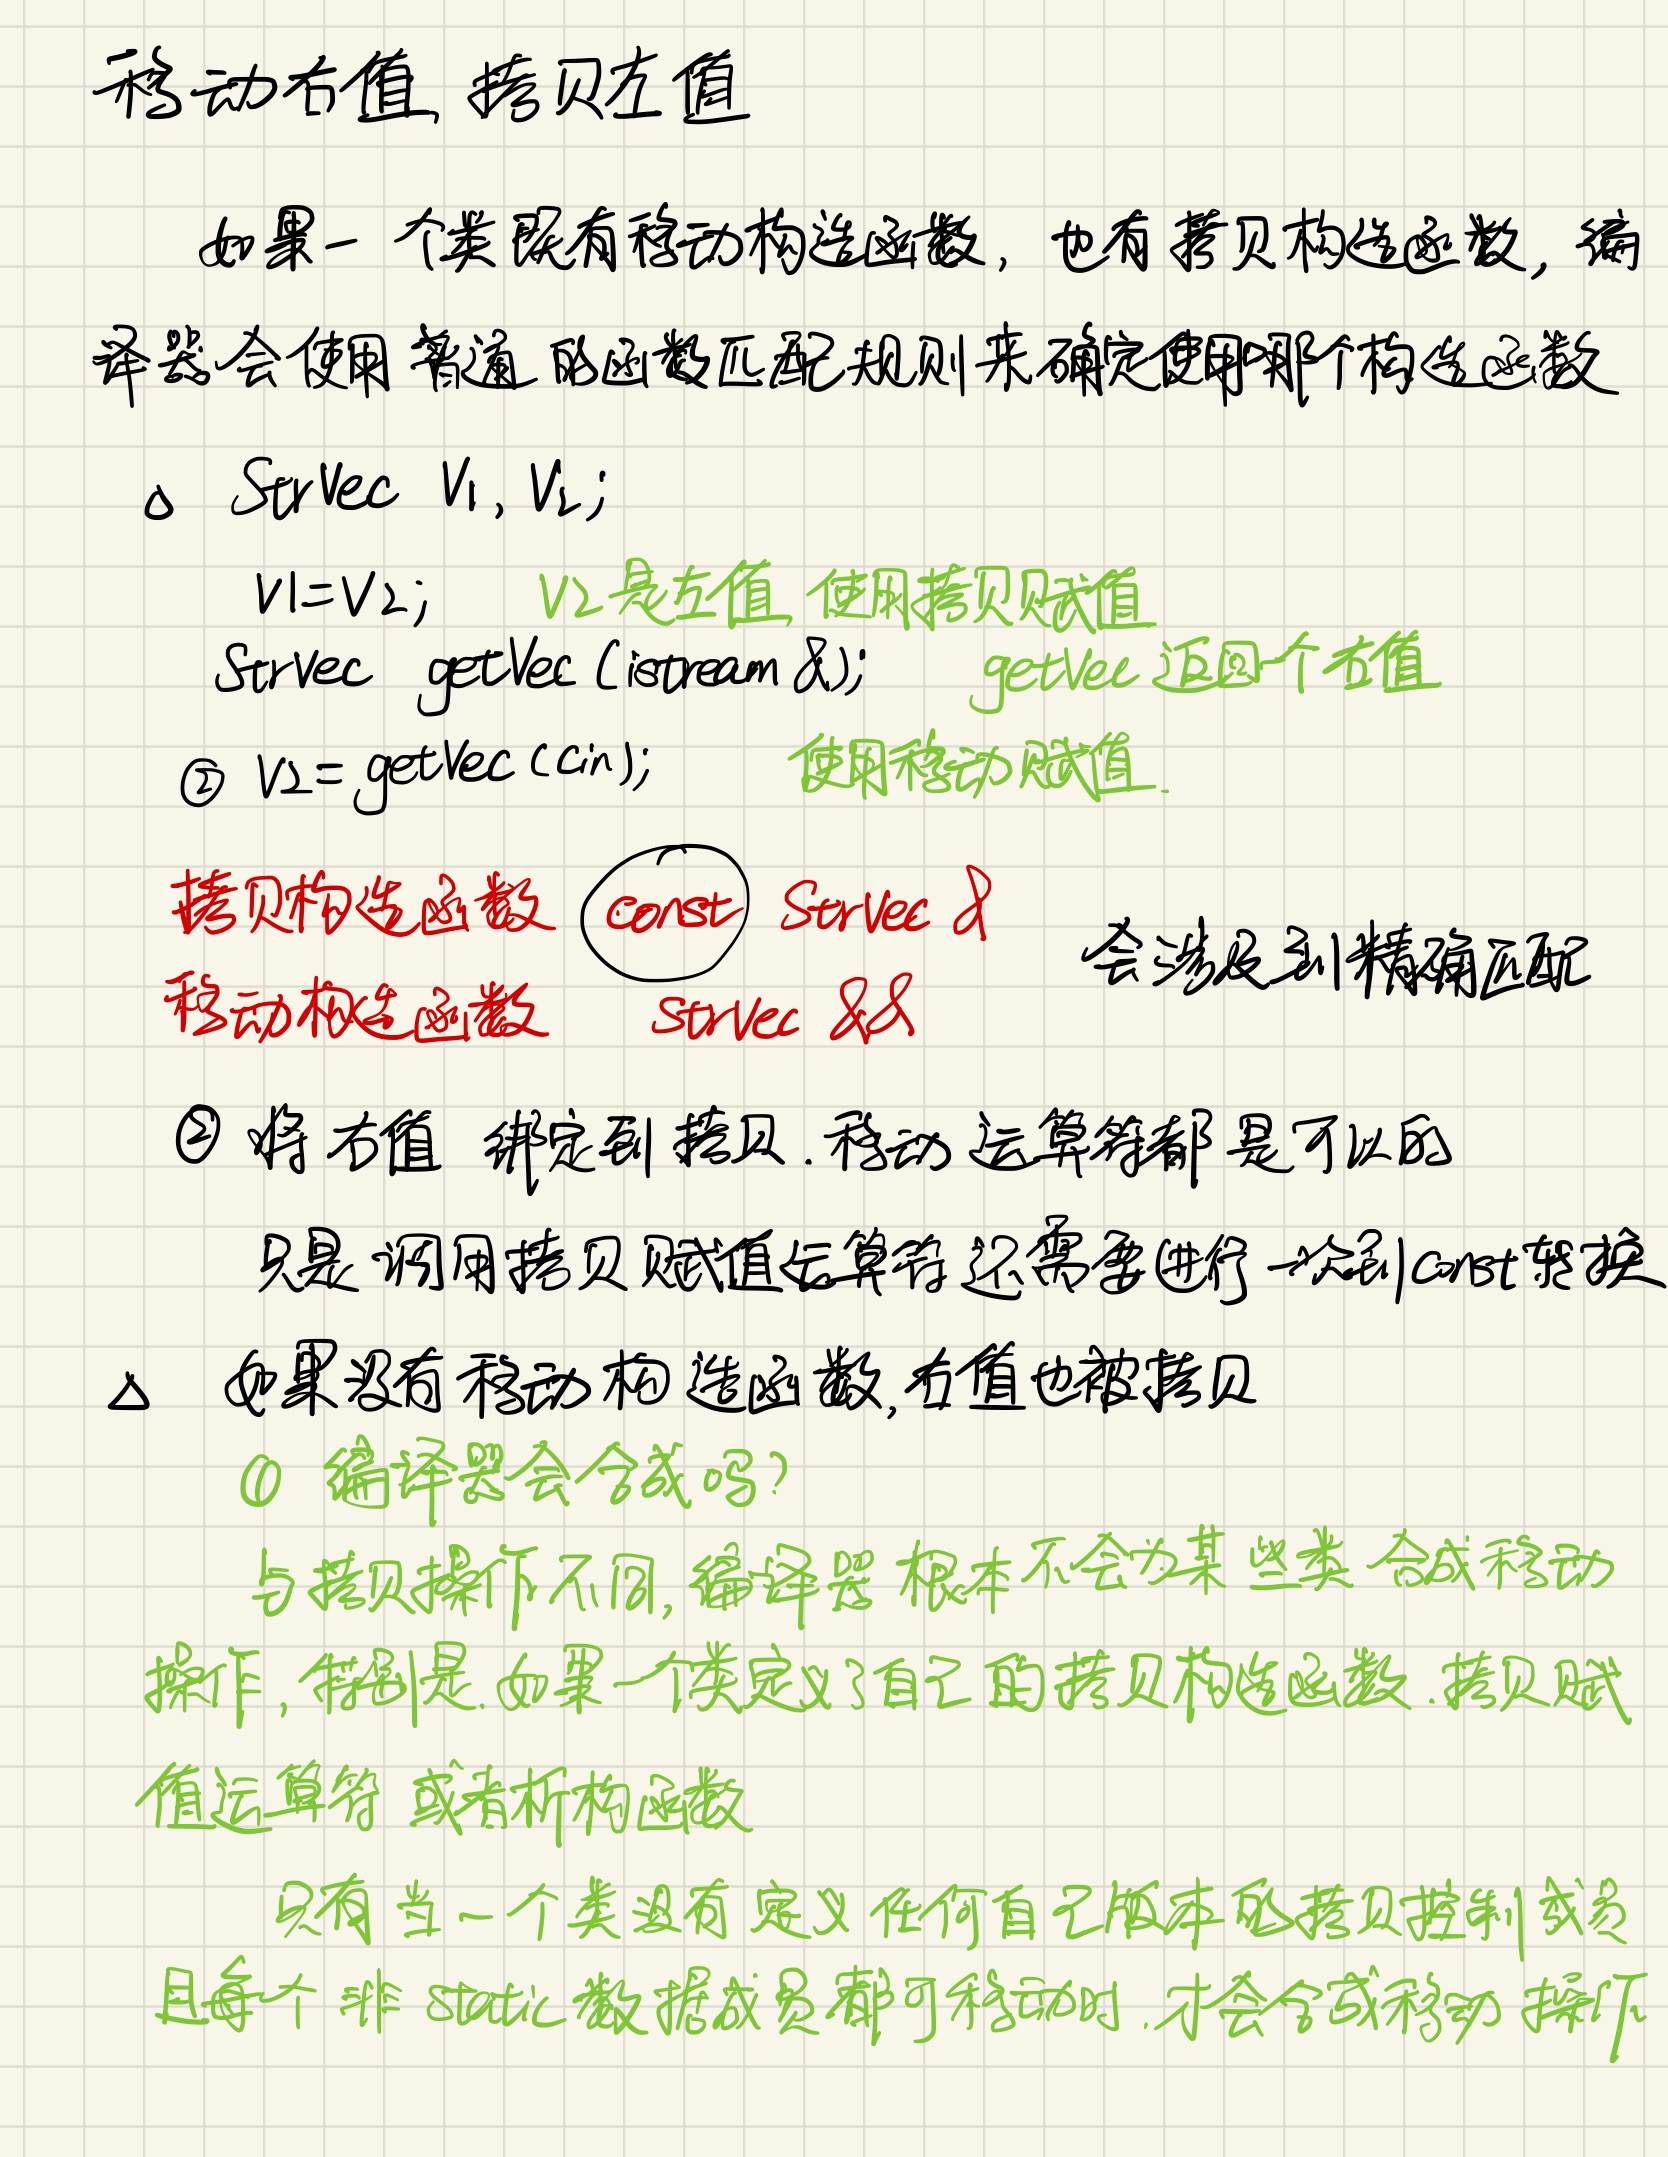 移动右值,拷贝左值
如果一个类既有移动构造函数,也有拷贝构造函数,编
译器会使用普通的函数匹配规则来确定使用哪个构造函数
△ StrVec V1, V2;
V1=V2; V2是左值,使用拷贝赋值
StrVec getVec(istream &); getVec返回一个右值
② V2=getVec(cin); 使用移动赋值.
拷贝构造函数 const StrVec &
会涉及到精确匹配
移动构造函数 StrVec &&
② 将右值 绑定到拷贝.移动运算符都是可以的
只是调用拷贝赋值运算符还需要进行一次到const转换
△ 如果没有移动构造函数,右值也被拷贝
① 编译器会合成吗?
与拷贝操作不同,编译器根本不会为某些类合成移动
操作,特别是.如果一个类定义了自己的拷贝构造函数.拷贝赋
值运算符或者析构函数
只有当一个类没有定义任何自己版本的拷贝控制成员
且每个非static数据成员都可移动时.才会合成移动操作